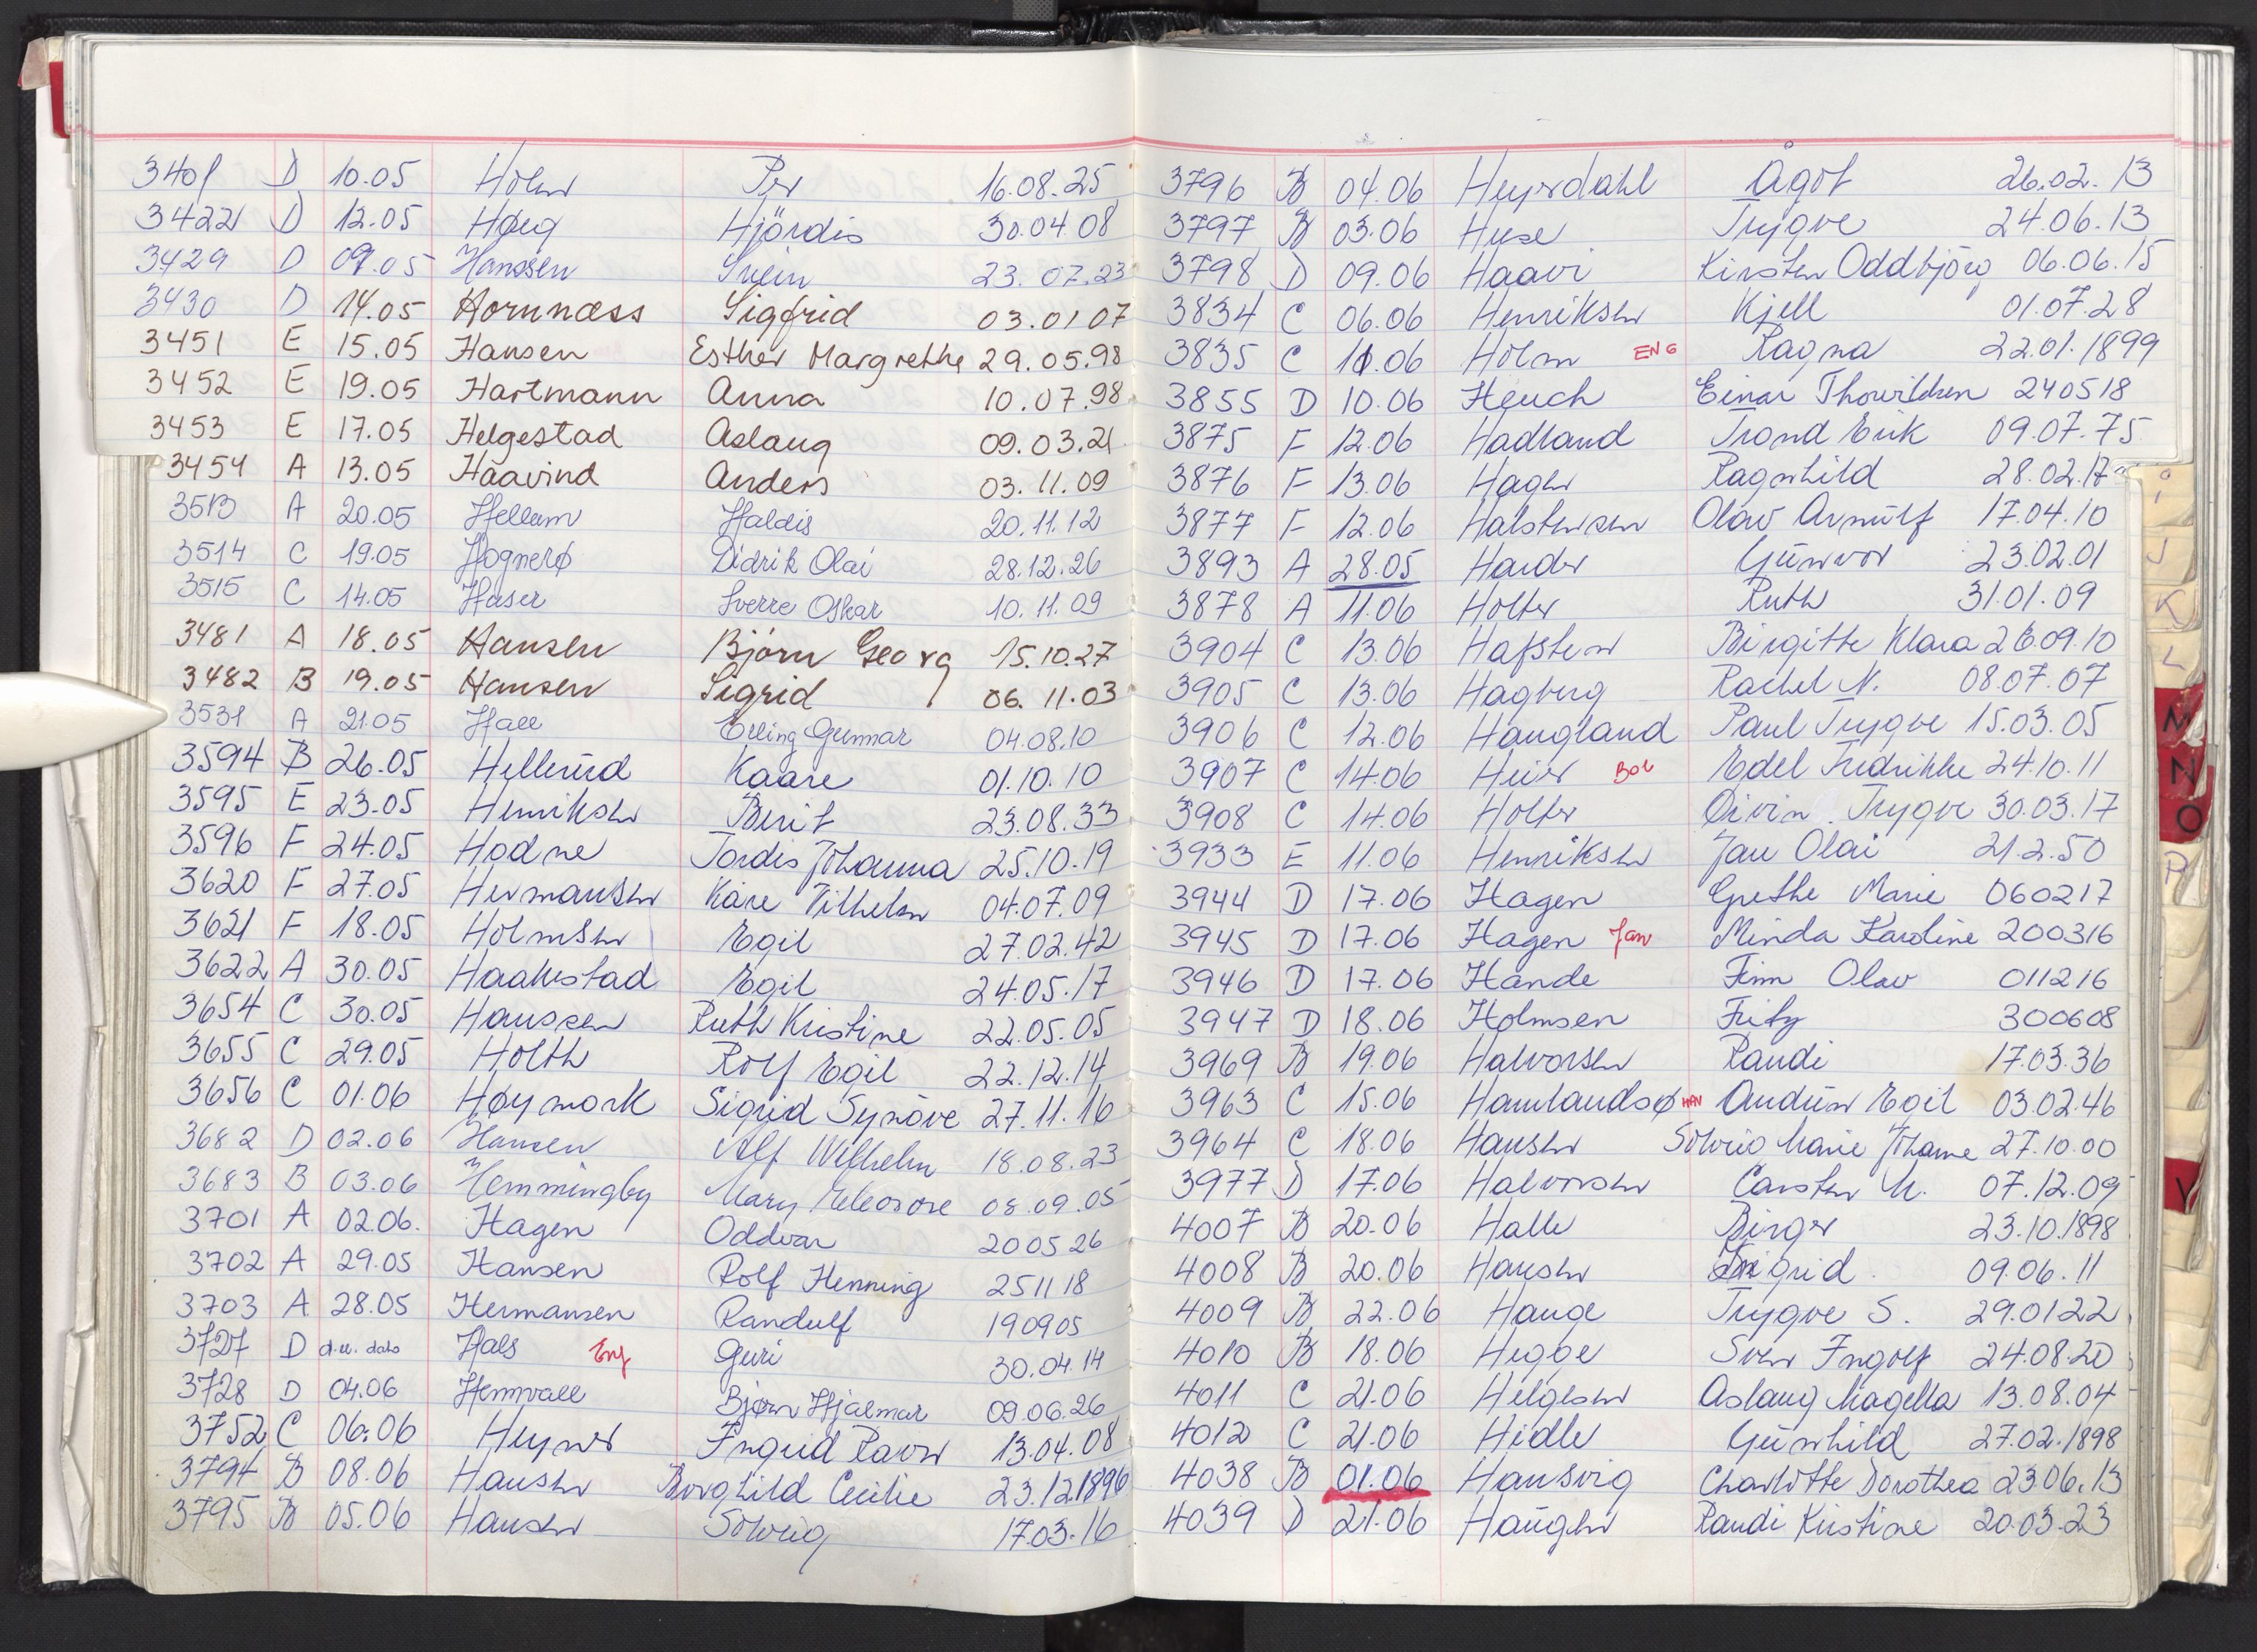 3401 D 10.05 Holm Per 16.08.25
3422 D 12.05 Høeg Hjördis 30.04.08
3429 D 09.05 Hanssen Svein 23.07.23
3430 D 14.05 Hornnæss Sigfrid 03.01 07
3451 E 15.05 Hansen Esther Margrethe 29.05.98
3452 E 19.05 Hartmann Anna 10.07.98
3453 E 17.05 Helgestad Aslaug 09.03.21
3454 A 13.05 Haavind Anders 03.11.09
3513 A 20.05 Hellum Haldis 20.11.12
3514 C 19.05 Hognerø Didrik Olai 28.12.26
3515 C 14.05 Haser Sverre Oskar 10.11.09
3481 A 18.05 Hansen Bjørn Georg 15.10.27
3482 B 19.05 Hansen Sigrid 06.11.03
3531 A 21.05 Hall Erling Gunnar 04.08.10
3594 B 26.05 Hellerud Kaare 01.10.10
3595 E 23.05 Henriksen Berit 23.08.33
3596 F 24.05 Hodne Tordis Johanna 25.10.19
3620 F 27.05 Hermansen Kåre Vilhelm 04.07.09
3621 F 18.05 Holmsen Egil 27.02.42
3622 A 30.05 Haakestad Egil 24.05.17
3654 C 30.05 Hanssen Ruth Kristine 22.05.05
3655 C 29.05 Holth Rolf Egil 22.12.14
3656 C 01.06 Høymork Sigrid Synöve 27.11.16
3682 D 02.06 Hansen Alf Wilhelm 18.08.23
3683 B 03.06 Hemmingby Mary Eleonore 08.09.05
3701 A 02.06. Hagen Oddvar 20 05 26
3702 A 29.05 Hansen Rolf Henning 25 11 18
3703 A 28.05 Hermansen Randulf 19 09 05
3727 D Hals Eng Guri 30.04.14
3728 D 04.06 Hemvall Bjørn Hjalmar 09.06.26
3752 C 06.06 Heyner Ingrid 13.04.08
3794 B 08.06 Hansen Borghild Cecilie 23.12.1896
3795 B 05.06 Hansen Solveig 17.03.16
3796 B 04.06 Heyerdahl Ågot 26.02.13
3797 B 03.06 Huse Trygve 24.06.13
3798 D 09.06 Haavi Kirsten Oddbjörg 06.06.15
3834 C 06.06 Henriksen Kjell 01.07.28
3835 C 10.06 Holm ENG Ragna 22.01.1899
3855 D 10.06 Heuch Einar 240518
3875 F 12.06 Hadland Trond Erik 09.07.75
3876 F 13.06 Hagen Ragnhild 28.02.17
3877 F 12.06 Halstensen Olav Arnulf 17.04.10
3893 A 28.05 Harder Gunvor 23.02.01
3878 A 11.06 Holter Ruth 31.01.09
3904 C 13.06 Hafsten Birgitte Klara 26.09.10
3905 C 13.06 Hagberg Rachel N. 08.07.07
3906 C 12.06 Haugland Paul Trygve 15.03.05
3907 C 14.06 Heier Bol Edel Fredrikke 24.10.11
3908 C 14.06 Holter Øivin Trygve 30.03.17
3933 E 11.06 Henriksen Jan Olai 21.2.50
3944 D 17.06 Hagen Grethe Marie 060217
3945 D 17.06 Hagen Jan Minda Karoline 200316
3946 D 17.06 Hande Finn Olav 011216
3947 D 18.06 Holmsen Fritz 300608
3969 B 19.06 Halvorsen Randi 17.03.36
3963 C 15.06 Hamlandsø HAN Audun Egil 03.02.46
3964 C 18.06 Hansen Solveig Marie Johanne 27.10.00
3977 D 17.06 Halvorsen Carsten M. 07.12.09
4007 B 20.06 Halle Birger 23.10.1898
4008 B 20.06 Hansen Ingrid 09.06.11
4009 B 22.06 Hauge Trygve S. 29.01 22
4010 B 18.06 Hegge Sven Ingolf 24.08.20
4011 C 21.06 Helgesen Aslaug Magella 13.08.04
4012 C 21.06 Hidle Gunhild 27.02.1898
4038 B 01.06 Hansvig Charlotte Dorothea 23.06.13
4039 D 21.06 Haugen Randi Kristine 20.03.23
i
J
K
L
M
N
O
P
V